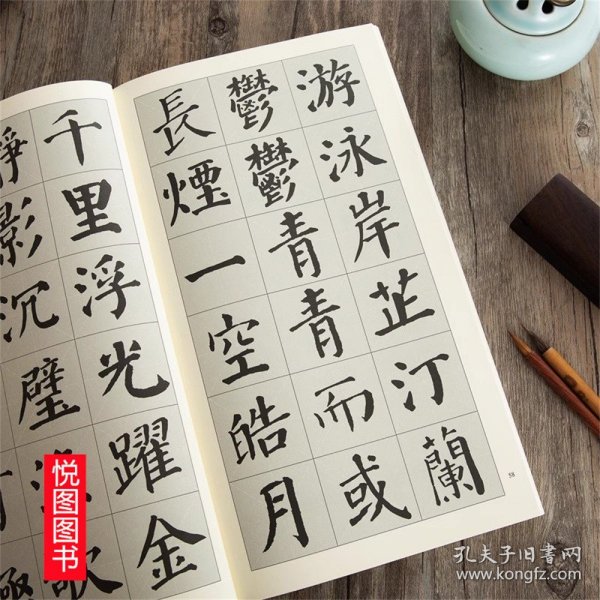 游泳岸芷汀蘭
鬱鬱青青而或
長煙一空皓月
千里浮光躍金
靜影沉璧漁歌
極
58
悦图图书
孔夫子旧書网
www.kongfz.com